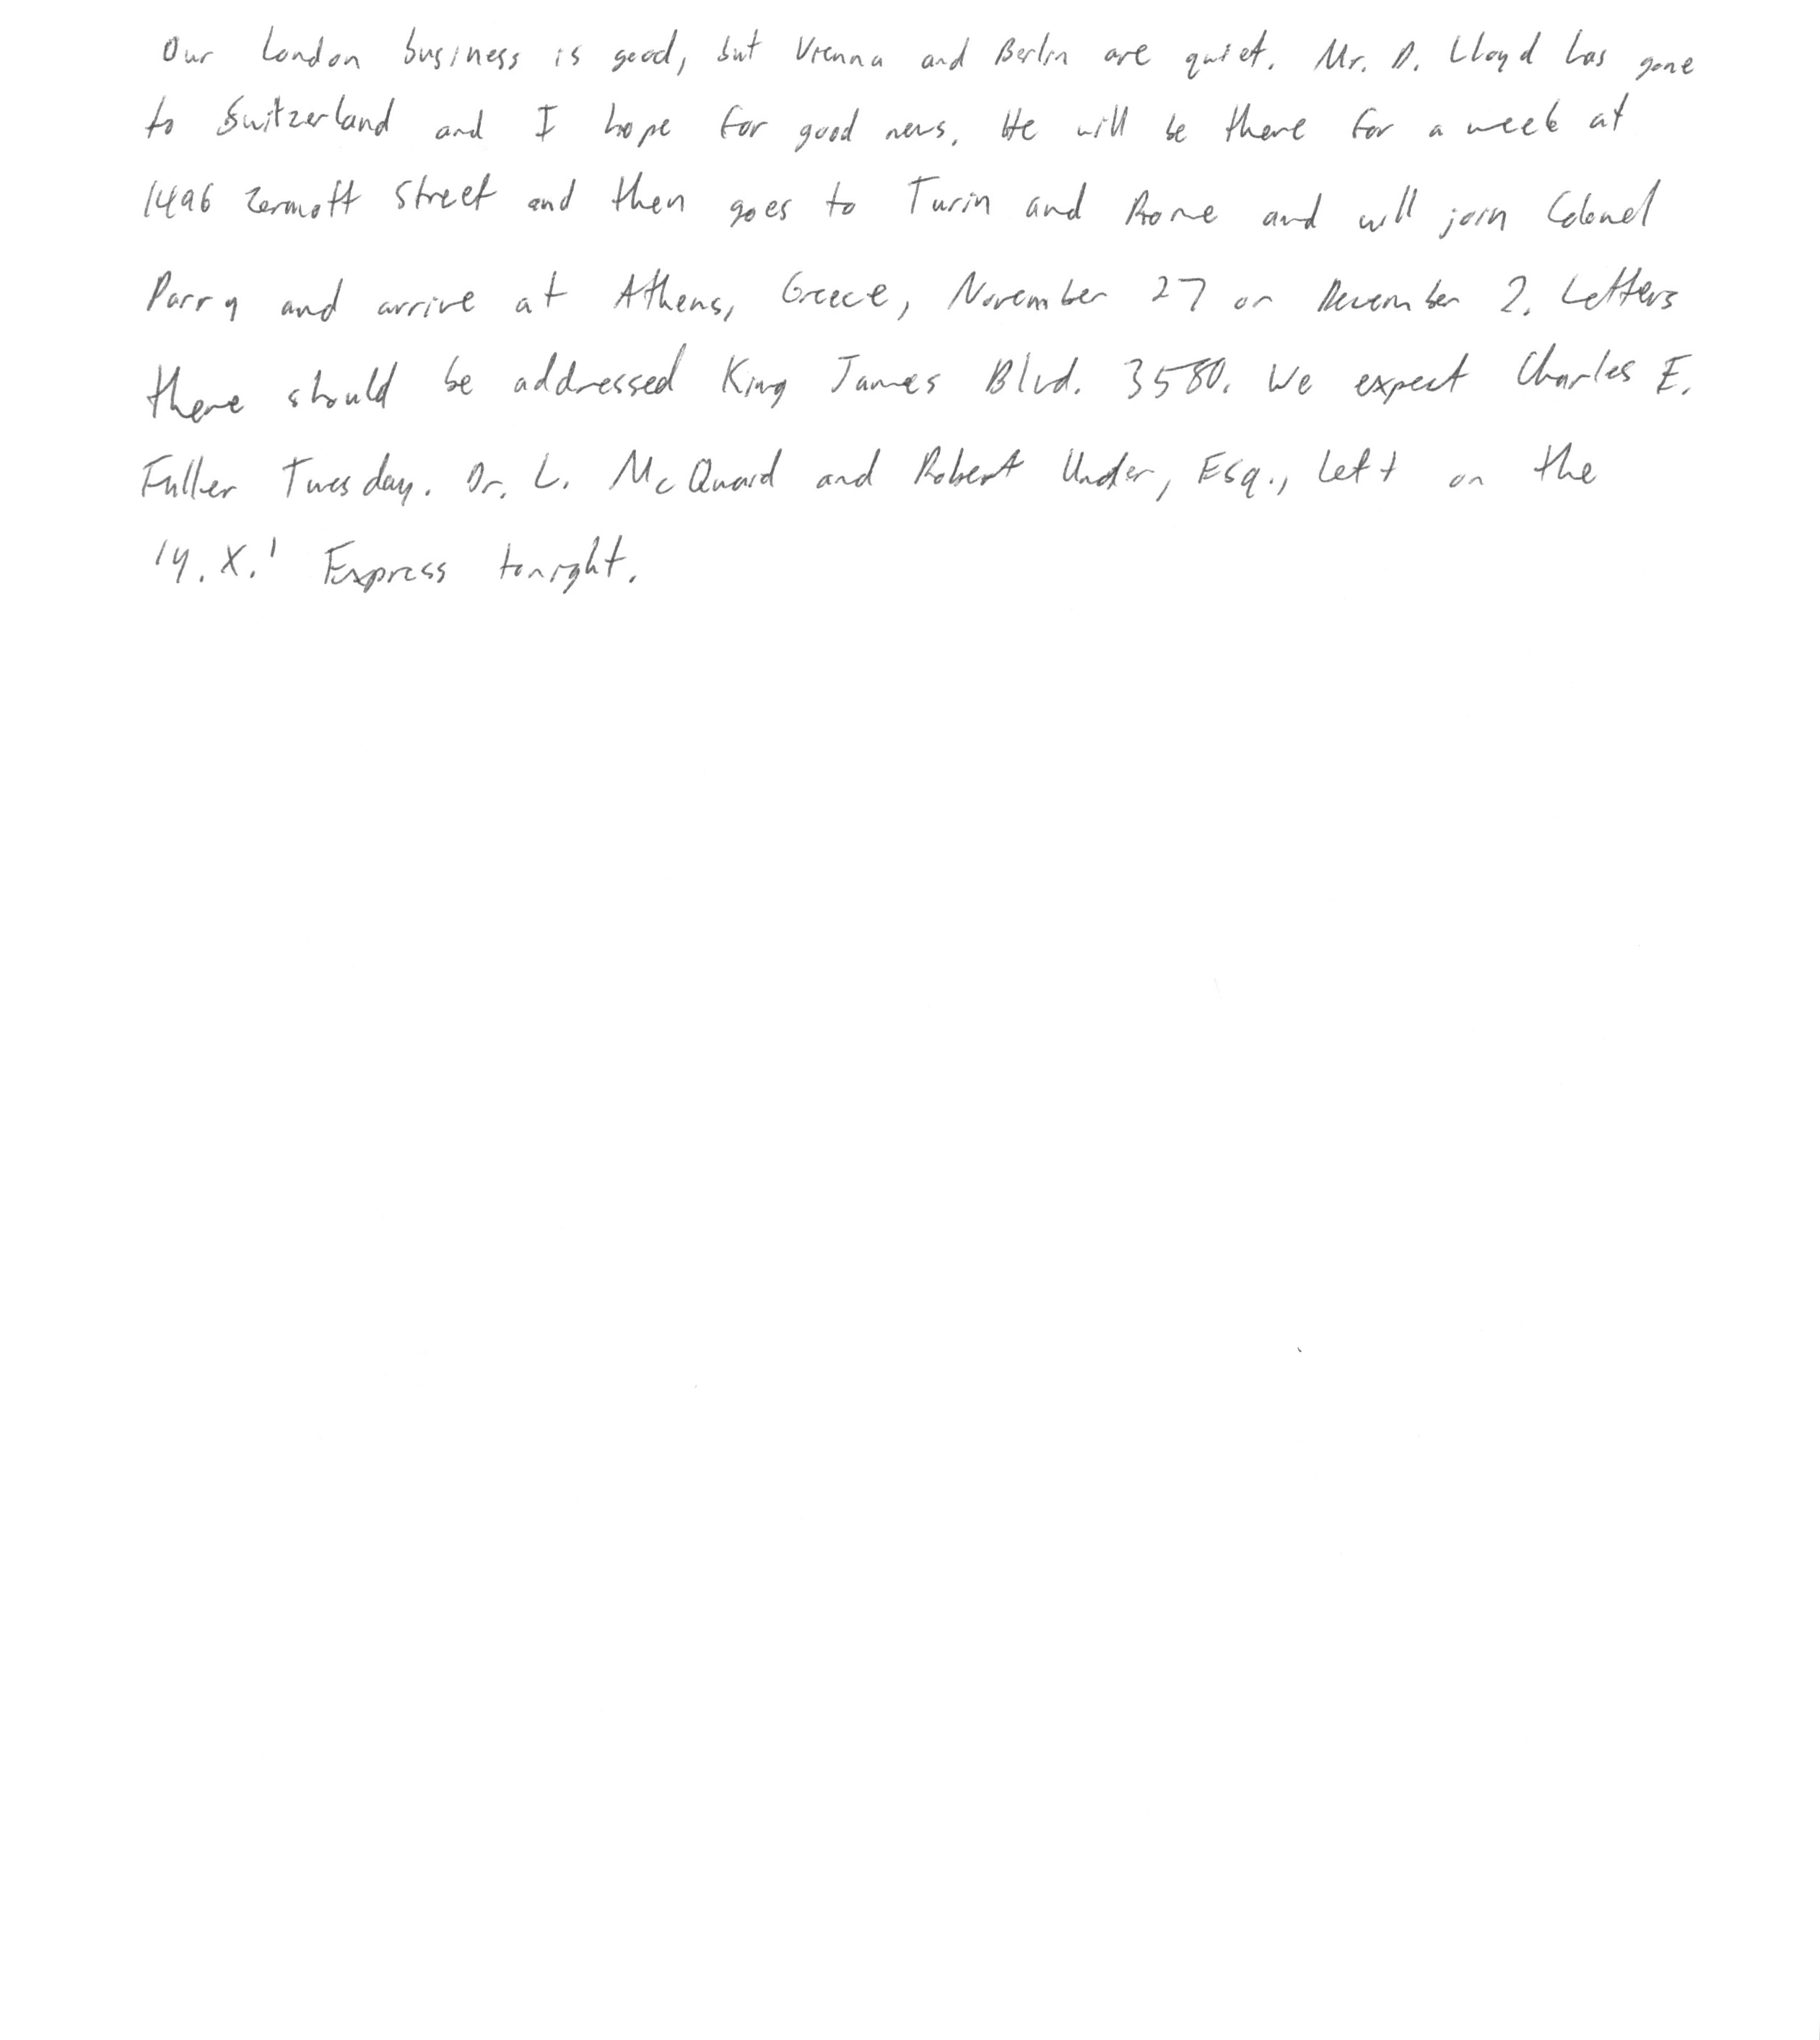 Our London business is good, but Vienna and Berlin are quiet. Mr. D. Lloyd has gone
to Switzerland and I hope for good news. He will be there for a week at
1496 Zermott Street and then goes to Turin and Rome and will join Colonel
Parry and arrive at Athens, Greece, November 27 or December 2. Letters
there should be addressed King James Blvd. 3580. We expect Charles E.
Fuller Tuesday. Dr. L. McQuaid and Robert Under, Esq., left on the
'Y.X.' Express tonight.